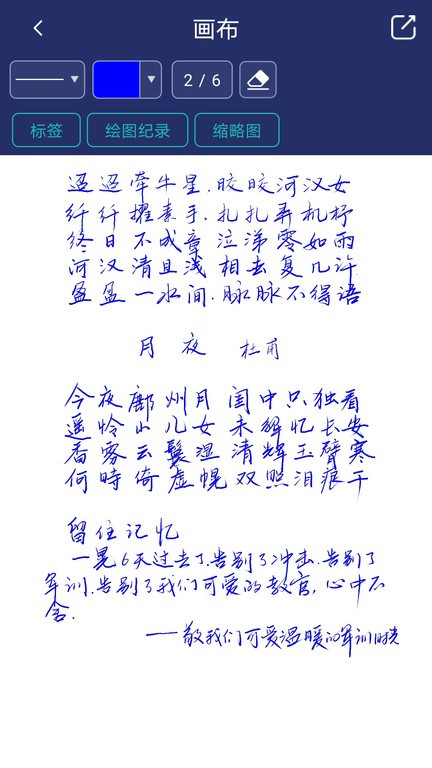 画布
2 / 6
标签 绘图纪录 缩略图
迢迢牵牛星.皎皎河汉女
纤纤擢素手.扎扎弄机杼
终日不成章 泣涕零如雨
河汉清且浅 相去复几许
盈盈一水间.脉脉不得语
月夜 杜甫
今夜鄜州月 闺中只独看
遥怜小儿女 未解忆长安
香雾云鬟湿 清辉玉臂寒
何時倚虚幌 双照泪痕干
留住记忆
一晃6天过去了.告别了冲击.告别了
军训.告别了我们可爱的教官,心中不
舍.
——敬我们可爱温暖的军训时光